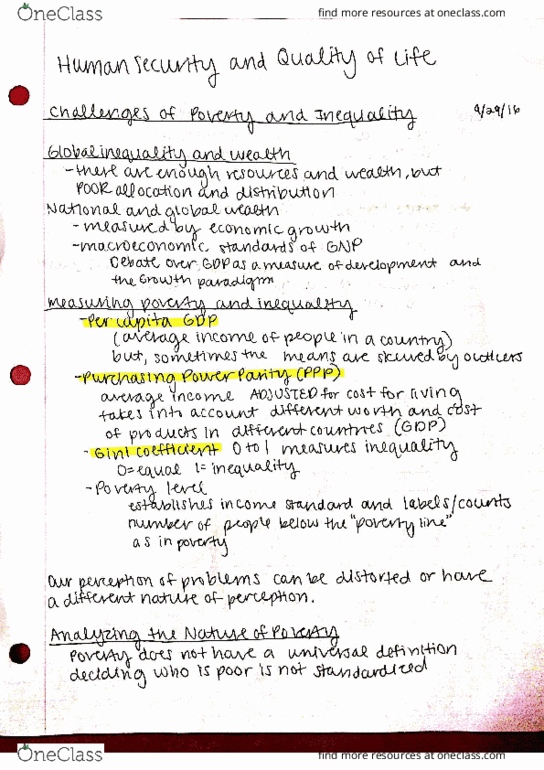 OneClass
find more resources at oneclass.com
Human Security and Quality of Life
Challenges of Poverty and Inequality
9/29/16
Global inequality and wealth
-there are enough resources and wealth, but
POOR allocation and distribution
National and global wealth
-measured by economic growth
-macroeconomic standards of GNP
Debate over GDP as a measure of development and
the Growth paradigm
Measuring poverty and inequality
-Per capita GDP
(average income of people in a country)
but, sometimes the means are skewed by outliers
-Purchasing Power Parity (PPP)
average income ADJUSTED for cost for living
takes into account different worth and cost
of products in different countries (GDP)
-Gini coefficient 0 to 1 measures inequality
0=equal 1=inequality
-Poverty level
establishes income standard and labels/counts
number of people below the "poverty line"
as in poverty
Our perception of problems can be distorted or have
a different nature of perception.
Analyzing the Nature of Poverty
Poverty does not have a universal definition
deciding who is poor is not standardized
OneClass
find more resources at oneclass.com